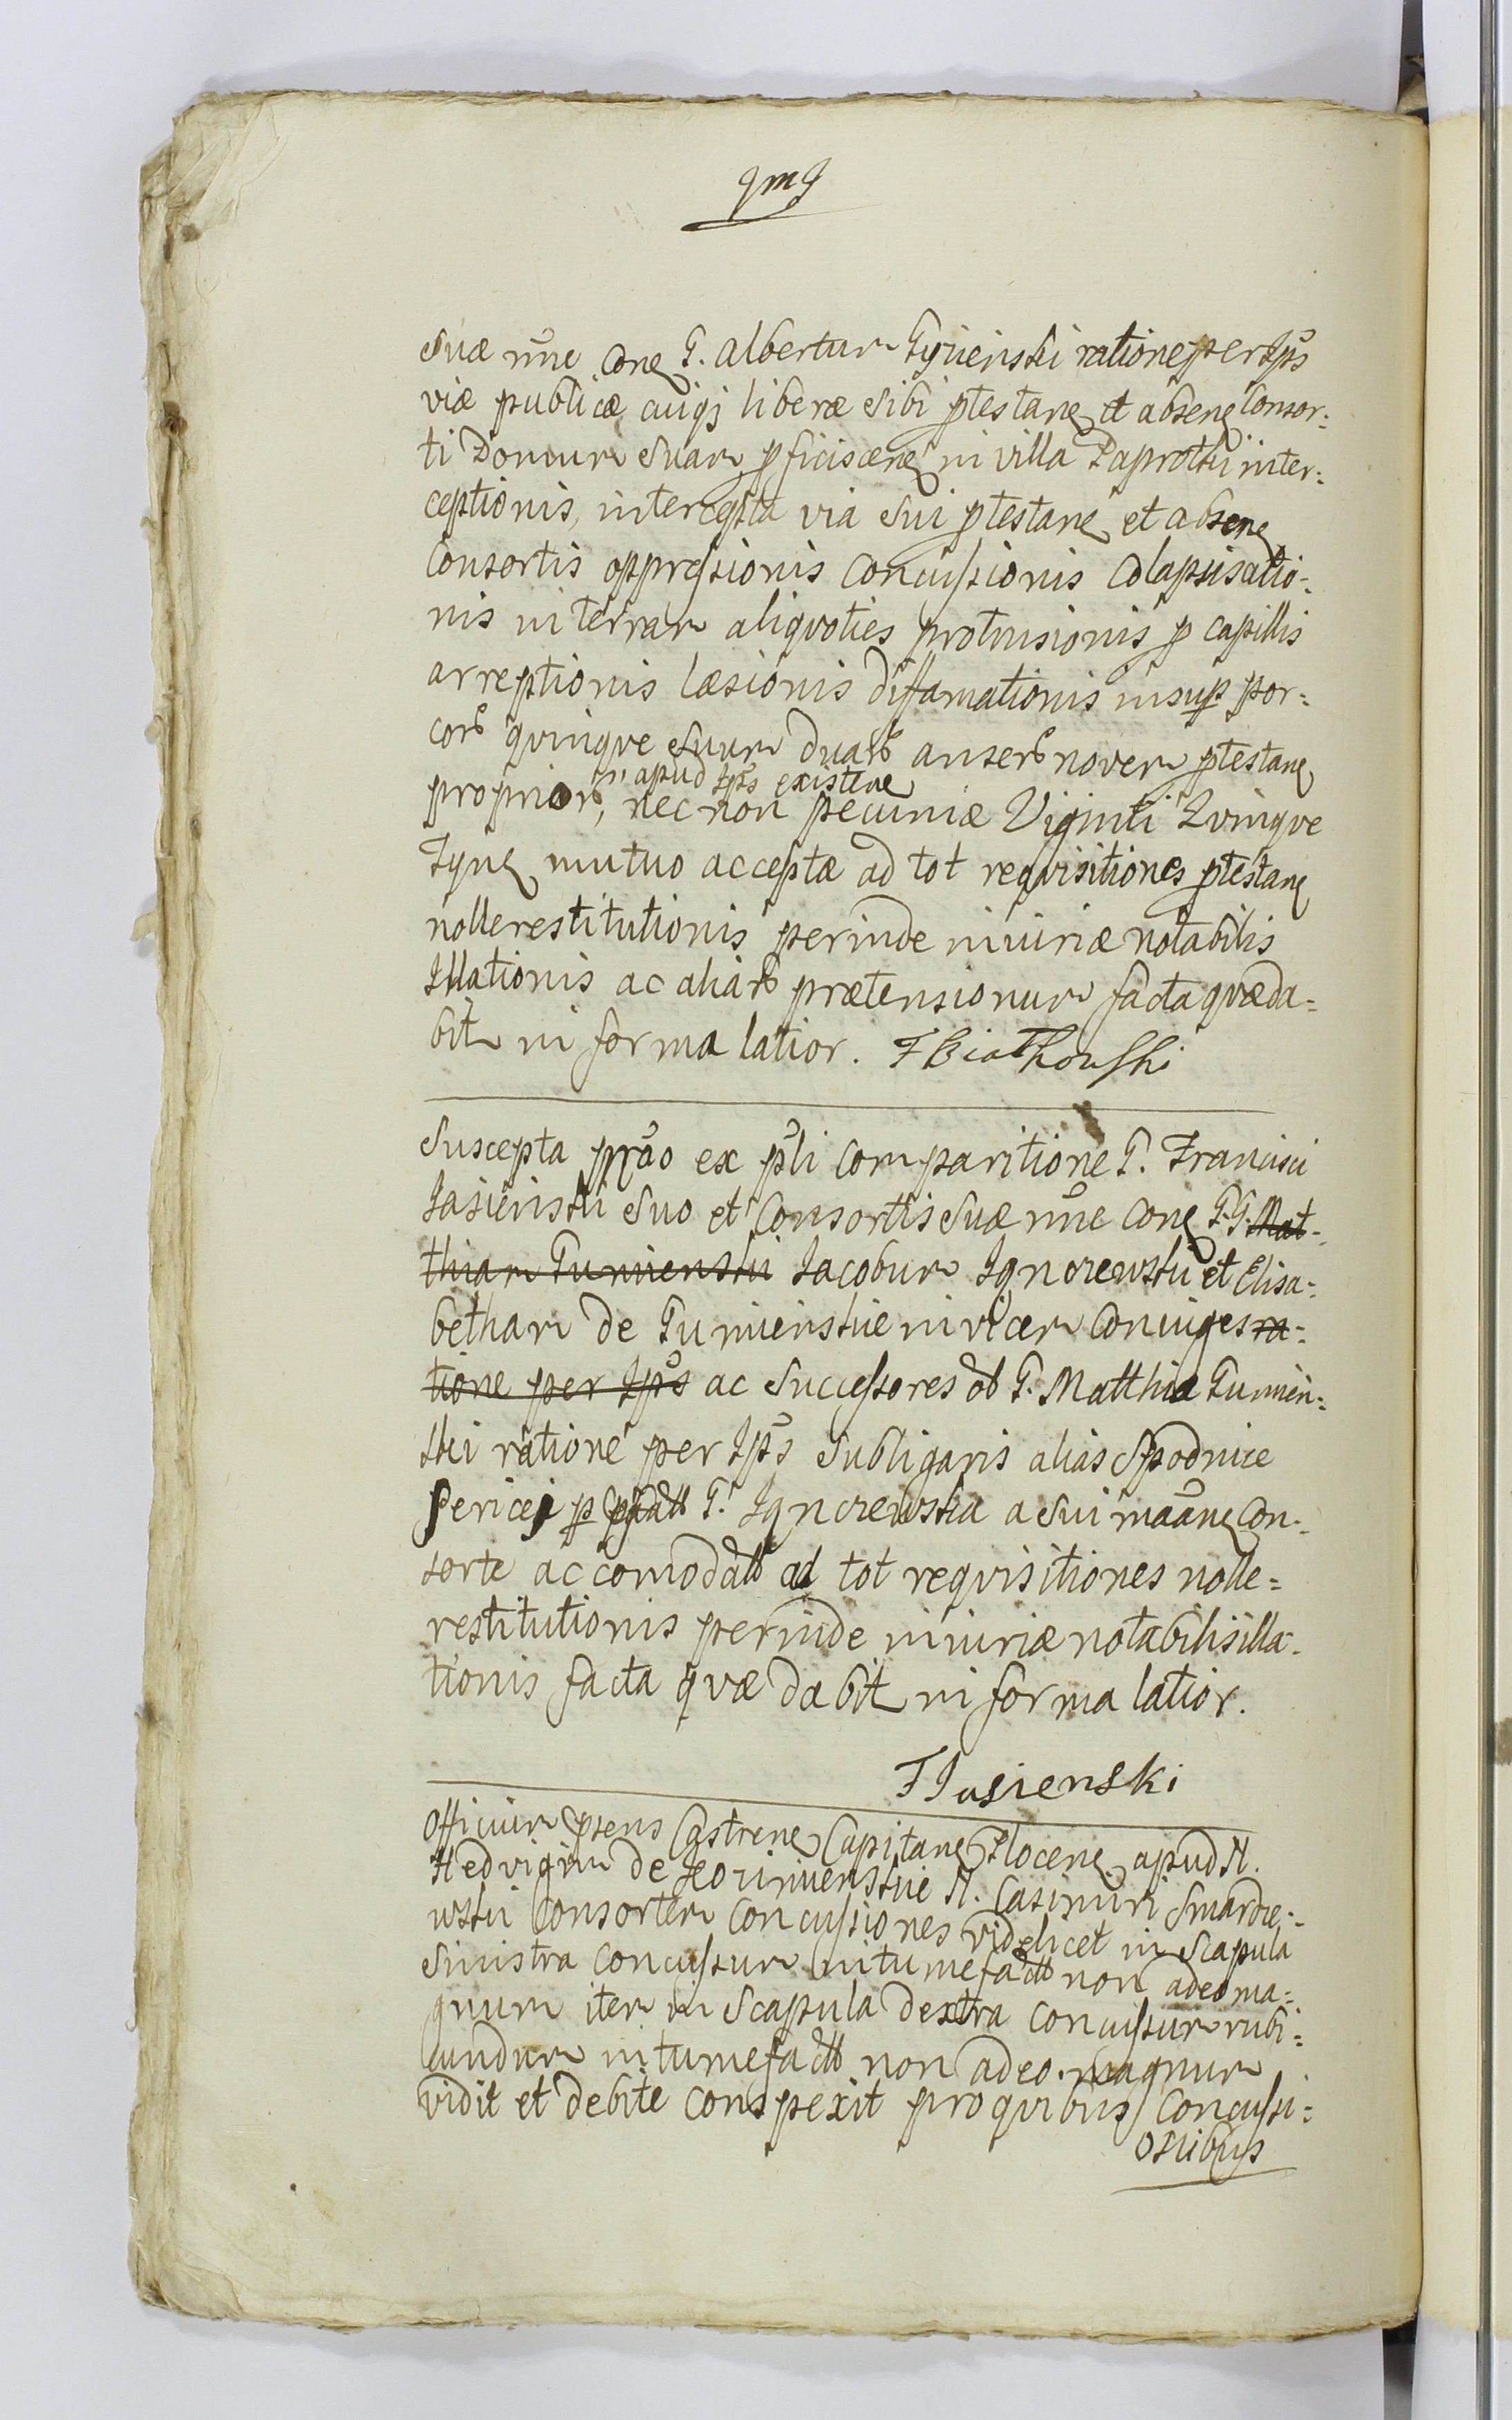 suæ nñe conę G. Albertum Gyzienski ratione per Ips̃
viæ publicæ cuiqȝ liberæ sibi ptestanę et absenę Consor-
ti Domum suam pficiscenę in villa Paprotki inter-
ceptionis, intercepta via sui ptestanę et absenę
Consortis oppressionis Concussionis Colaphisatio-
nis in terram aliquoties protrusionis p capillis
arreptionis læsionis diffamationis insup por-
corȝ quinque suum duarȝ anserȝ novem ptestanę
apud Ips̃ existenę
propriorȝ, nec non pecuniæ Viginti Quinque
mutuo acceptæ ad tot requisitiones ptestanę
nollerestitutionis perinde iniuriæ notabilis
Illationis ac aliarȝ prætensionum facta quæ da-
bit in forma latior. F Białkowski
Suscepta ex pĩi Comparitione G. Francisci
Jasienski suo et Consortis suæ nñe conę G.G. Mat-
thiam Jacobum et Elisa-
betham de in vicem Coniuges ra-
tione per Ips̃ ac Successores oƀ G. Matthia
ski ratione per Ips̃ subligaris alias Spodnice
sericej p G. a sui con-
sorte accomodatȝ ad tot requisitiones nolle-
restitutionis perinde iniuriæ notabilis illa-
tionis facta quæ dabit in forma latior.
F Jasienski
Officium psens Castrenę Capitanę Plocenę apud N.
Hedvigim de N. Casimiri Smardze-
wski Consortem Concussiones videlicet in Scapula
sinistra concussum intumefactȝ non adeo ma-
gnum item in Scapula dextra concussum rubi-
cundum intumefactȝ non adeo magnum
vidit et debite conspexit pro quibus Concussi-
onibus